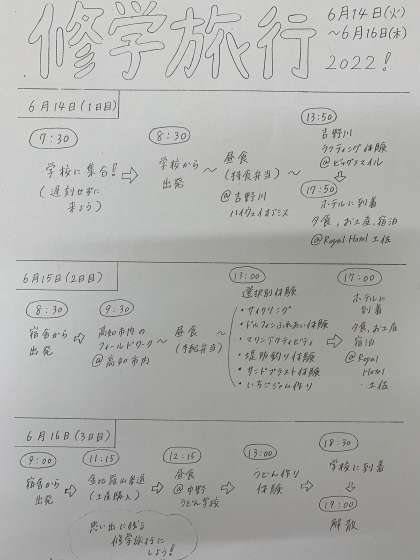 修学旅行
6月14日(火)
～6月16日(木)
2022!
6月14日(1日目)
7:30
学校に集合!
(遅刻せずに
来よう)
8:30
学校から
出発
～
昼食
(持食弁当)
@吉野川
ハイウェイオアシス
～
13:50
吉野川
ラフティング体験
@ビッグスマイル
17:50
ホテルに到着
夕食,お土産,宿泊
@Royal Hotel 土佐
6月15日(2日目)
8:30
宿舎から
出発
9:30
高知市内の
フィールドワーク～
@高知市内
昼食
(手配弁当)
～
13:00
選択別体験
・サイクリング
・ドルフィンふれあい体験
・マリンアクティビティ
・堤防釣り体験
・サンドブラスト体験
・いちごジャム作り
17:00
ホテルに
到着
夕食,お土産
宿泊
@Royal
Hotel
土佐
6月16日(3日目)
9:00
宿舎から
出発
11:15
金比羅山参道
(土産購入)
12:15
昼食
@中野
うどん学校
13:00
うどん作り
体験
18:30
学校に到着
19:00
解散
思い出に残る
修学旅行に
しよう!